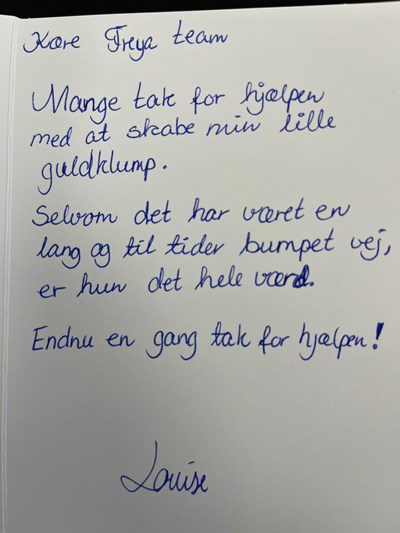 Kære Freya team
Mange tak for hjælpen
med at skabe min lille
guldklump.
Selvom det har været en
lang og til tider bumpet vej,
er hun det hele værd.
Endnu en gang tak for hjælpen!
Louise